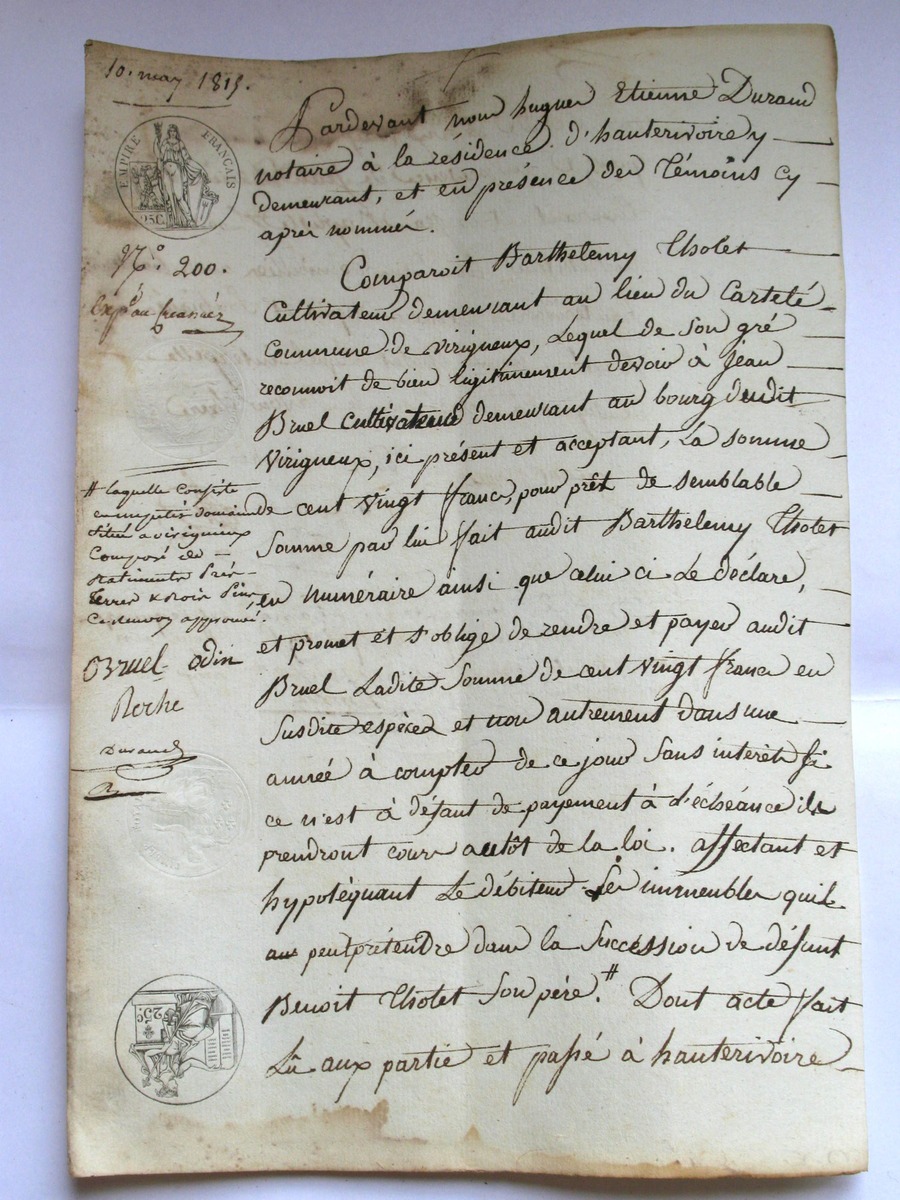 10. may 1815.
EMPIRE FRANÇAIS
25C.
N.o 200.
Pardevant nous hugues Etienne Durand
notaire à la résidence d'hauterivoire y
demeurant, et en présence des Témoins cy
après nommés.
Comparoit Barthelemy Tholet
Cultivateur demeurant au lieu du Carteté
Commune de Virigneux, Lequel de Son gré
reconnoit de bien légitimement devoir à Jean
Bruel Cultivateur demeurant au bourg dudit
Virigneux, ici présent et acceptant, La Somme
de cent vingt francs, pour prêt de semblable
Somme par lui fait audit Barthelemy Tholet
en numéraire ainsi que celui ci Le déclare,
et promet et s'oblige de rendre et payer audit
Bruel Ladite Somme de cent vingt francs en
Susdite espèces et non autrement dans une
année à compter de ce jour Sans intérêts Si
ce n'est à défaut de payement à l'échéance ils
prendront cours
de la loi. affectant et
hypotéquant Le débiteur Les immeubles quil
peut prétendre dans la Succession de défunt
Benoit Tholet Son père.# Dont acte fait
Lû aux partie et passé à hauterivoire
# laquelle Consiste
en un petit domaine
Situé a virigneux
Composé de
Batiments Prés
Terres & bois
Ce renvoy approuvé.
Bruel odin
Roche
Durand
25C